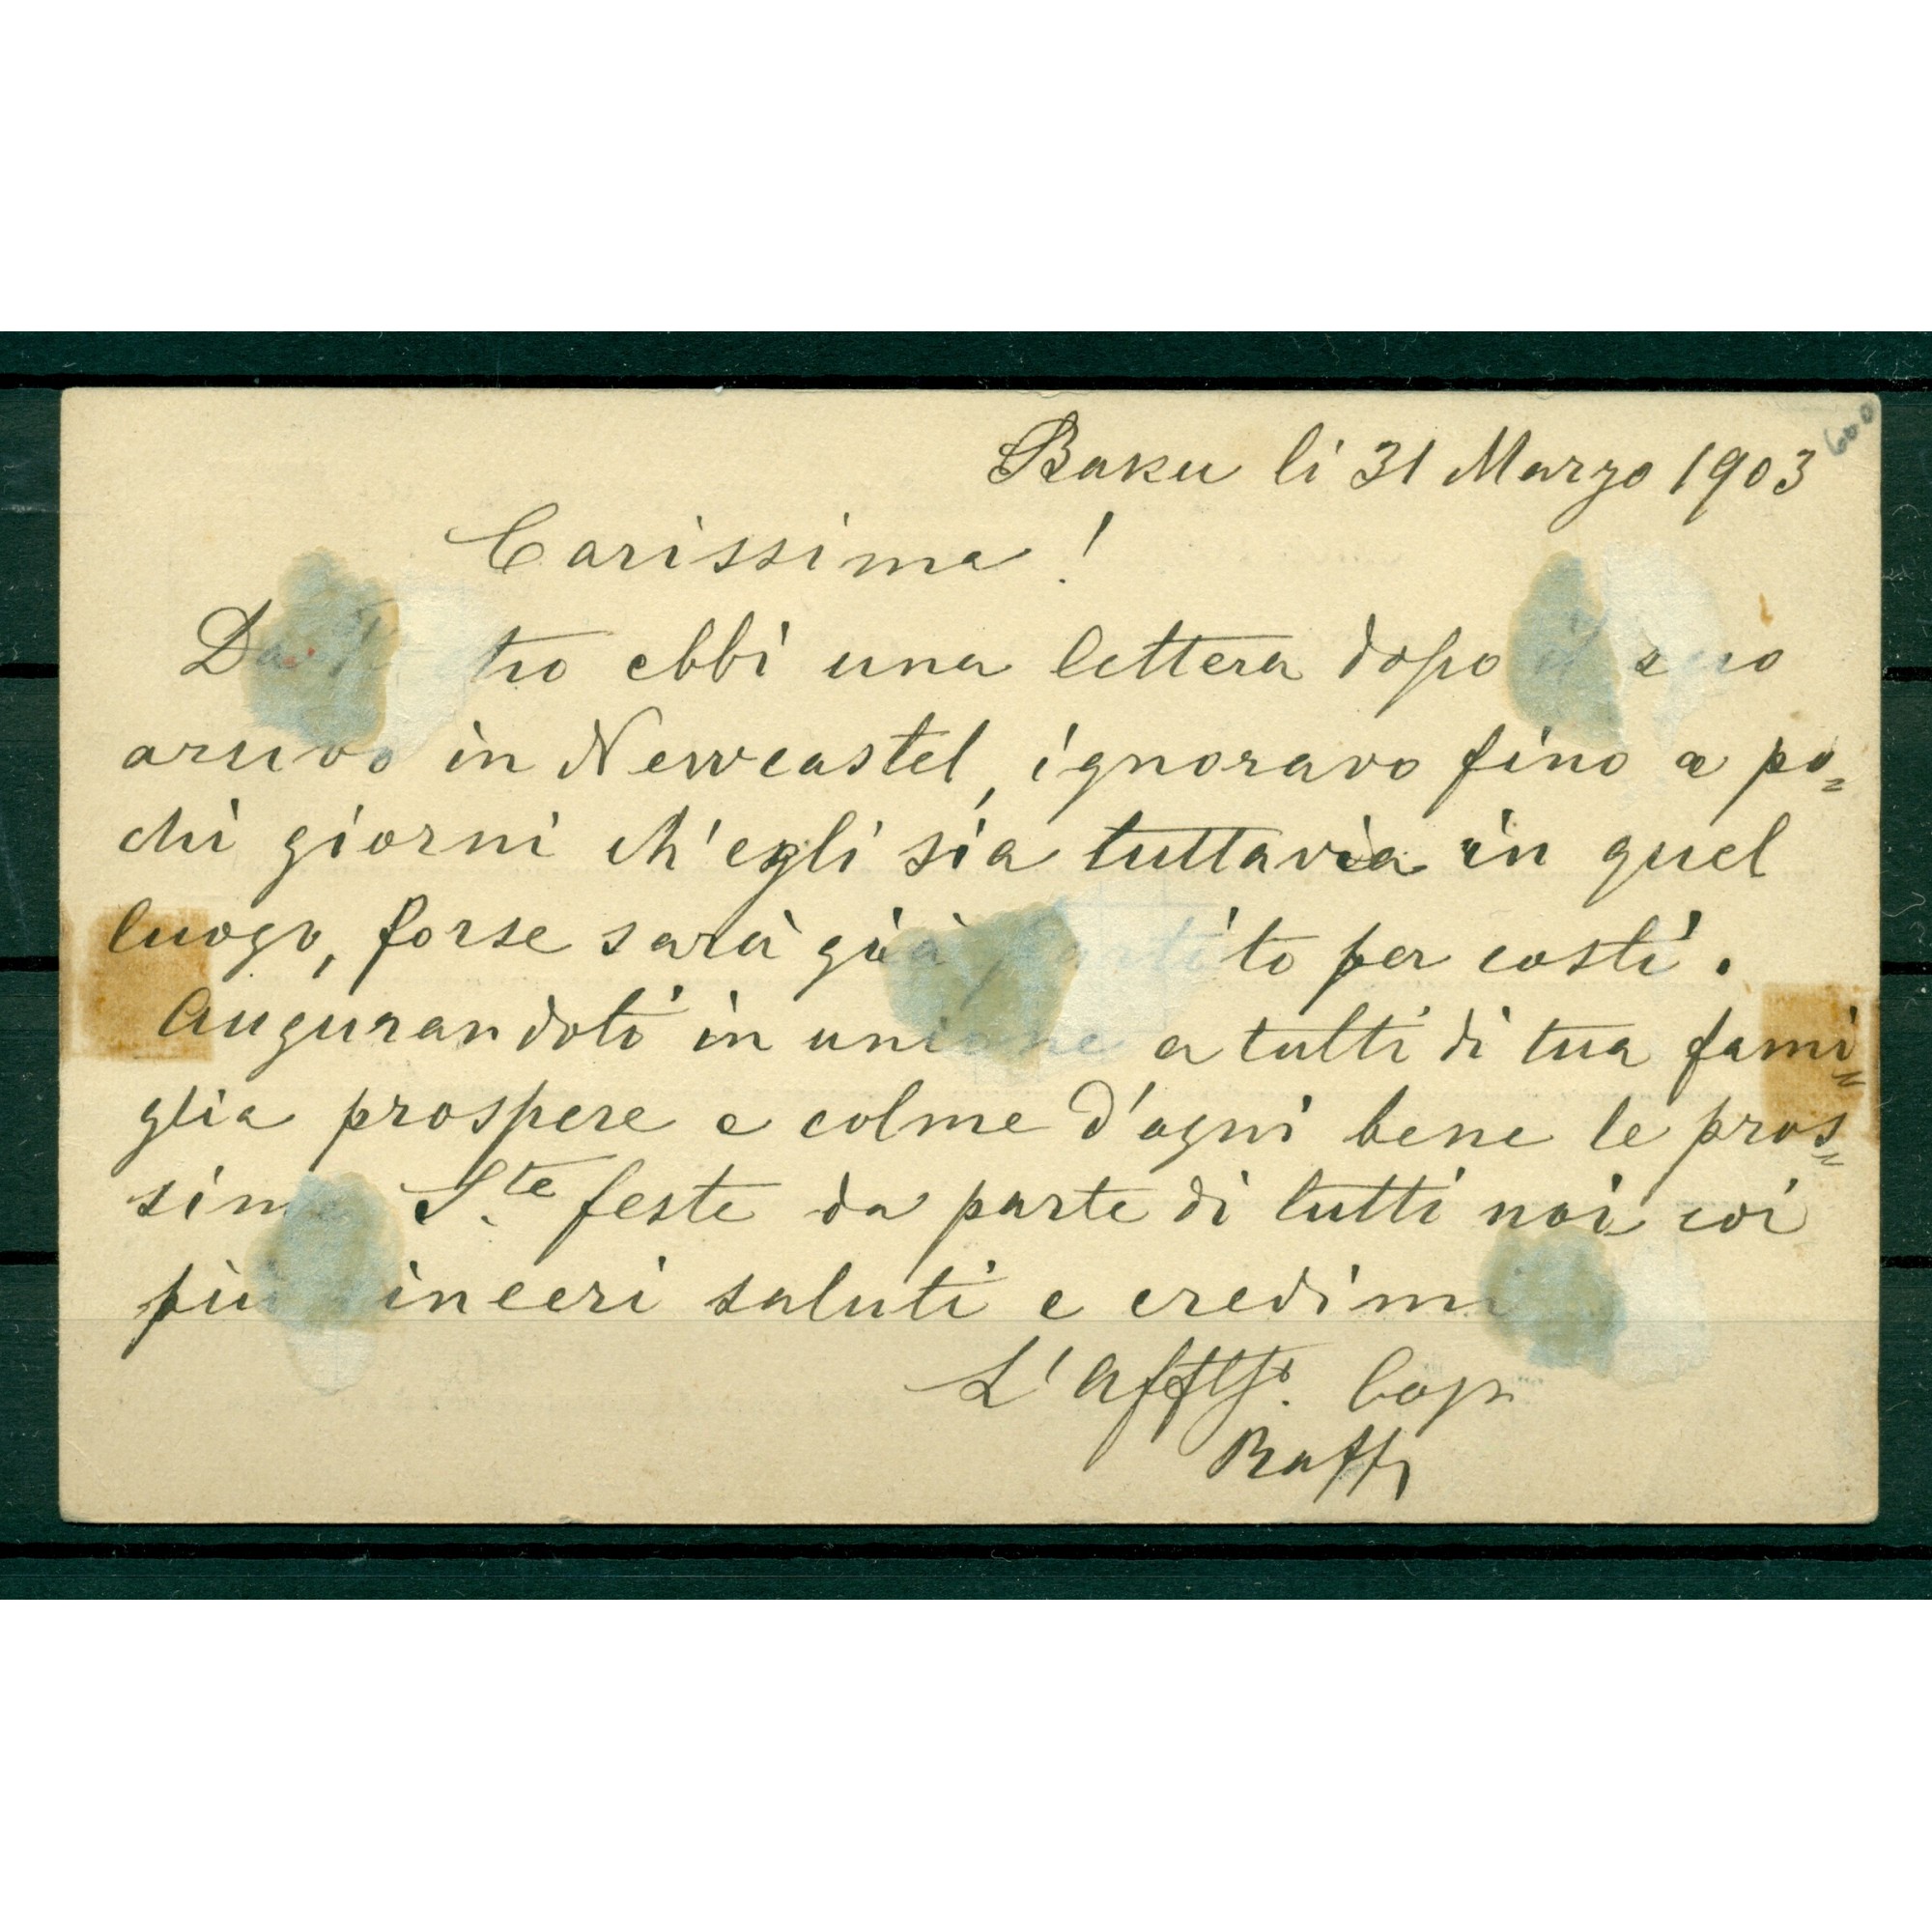 Baku li 31 Marzo 1903
600
Carissima!
ebbi una lettera dopo il suo
arrivo in Newcastel, ignoravo fino a po=
chi giorni ch'egli sia tuttavia in quel
luogo, forse sarà già partito per costì.
Augurandoti in unione a tutti di tua fami=
glia prospere e colme d'ogni bene le pros=
sime S.te feste da parte di tutti noi coi
più sinceri saluti e credimi
L'Aff
Raffi